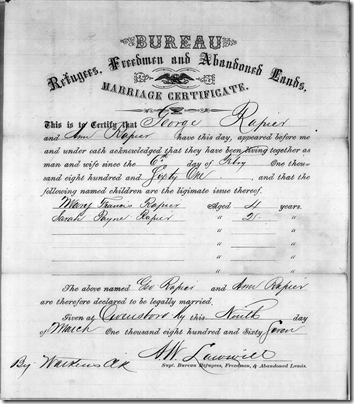 BUREAU
Refugees, Freedmen and Abandoned Lands.
MARRIAGE CERTIFICATE.
This is to Certify that George Rapier
and Ann Rapier have this day, appeared before me
and under oath acknowledged that they have been living together as
man and wife since the 6th day of Febry One thou-
sand eight hundred and Sixty One, and that the
following named children are the ligimate issue thereof.
Mary Francis Rapier Aged 4 years.
Sarah Payne Rapier " 2 "
" "
" "
" "
The above named Geo Rapier and Ann Rapier
are therefore declared to be legally married.
Given at Owensboro Ky this Ninth day
of March One thousand eight hundred and Sixty Seven
A.W. Lawwill
By Watkins Supt. Bureau Refugees, Freedmen, & Abandoned Lands.